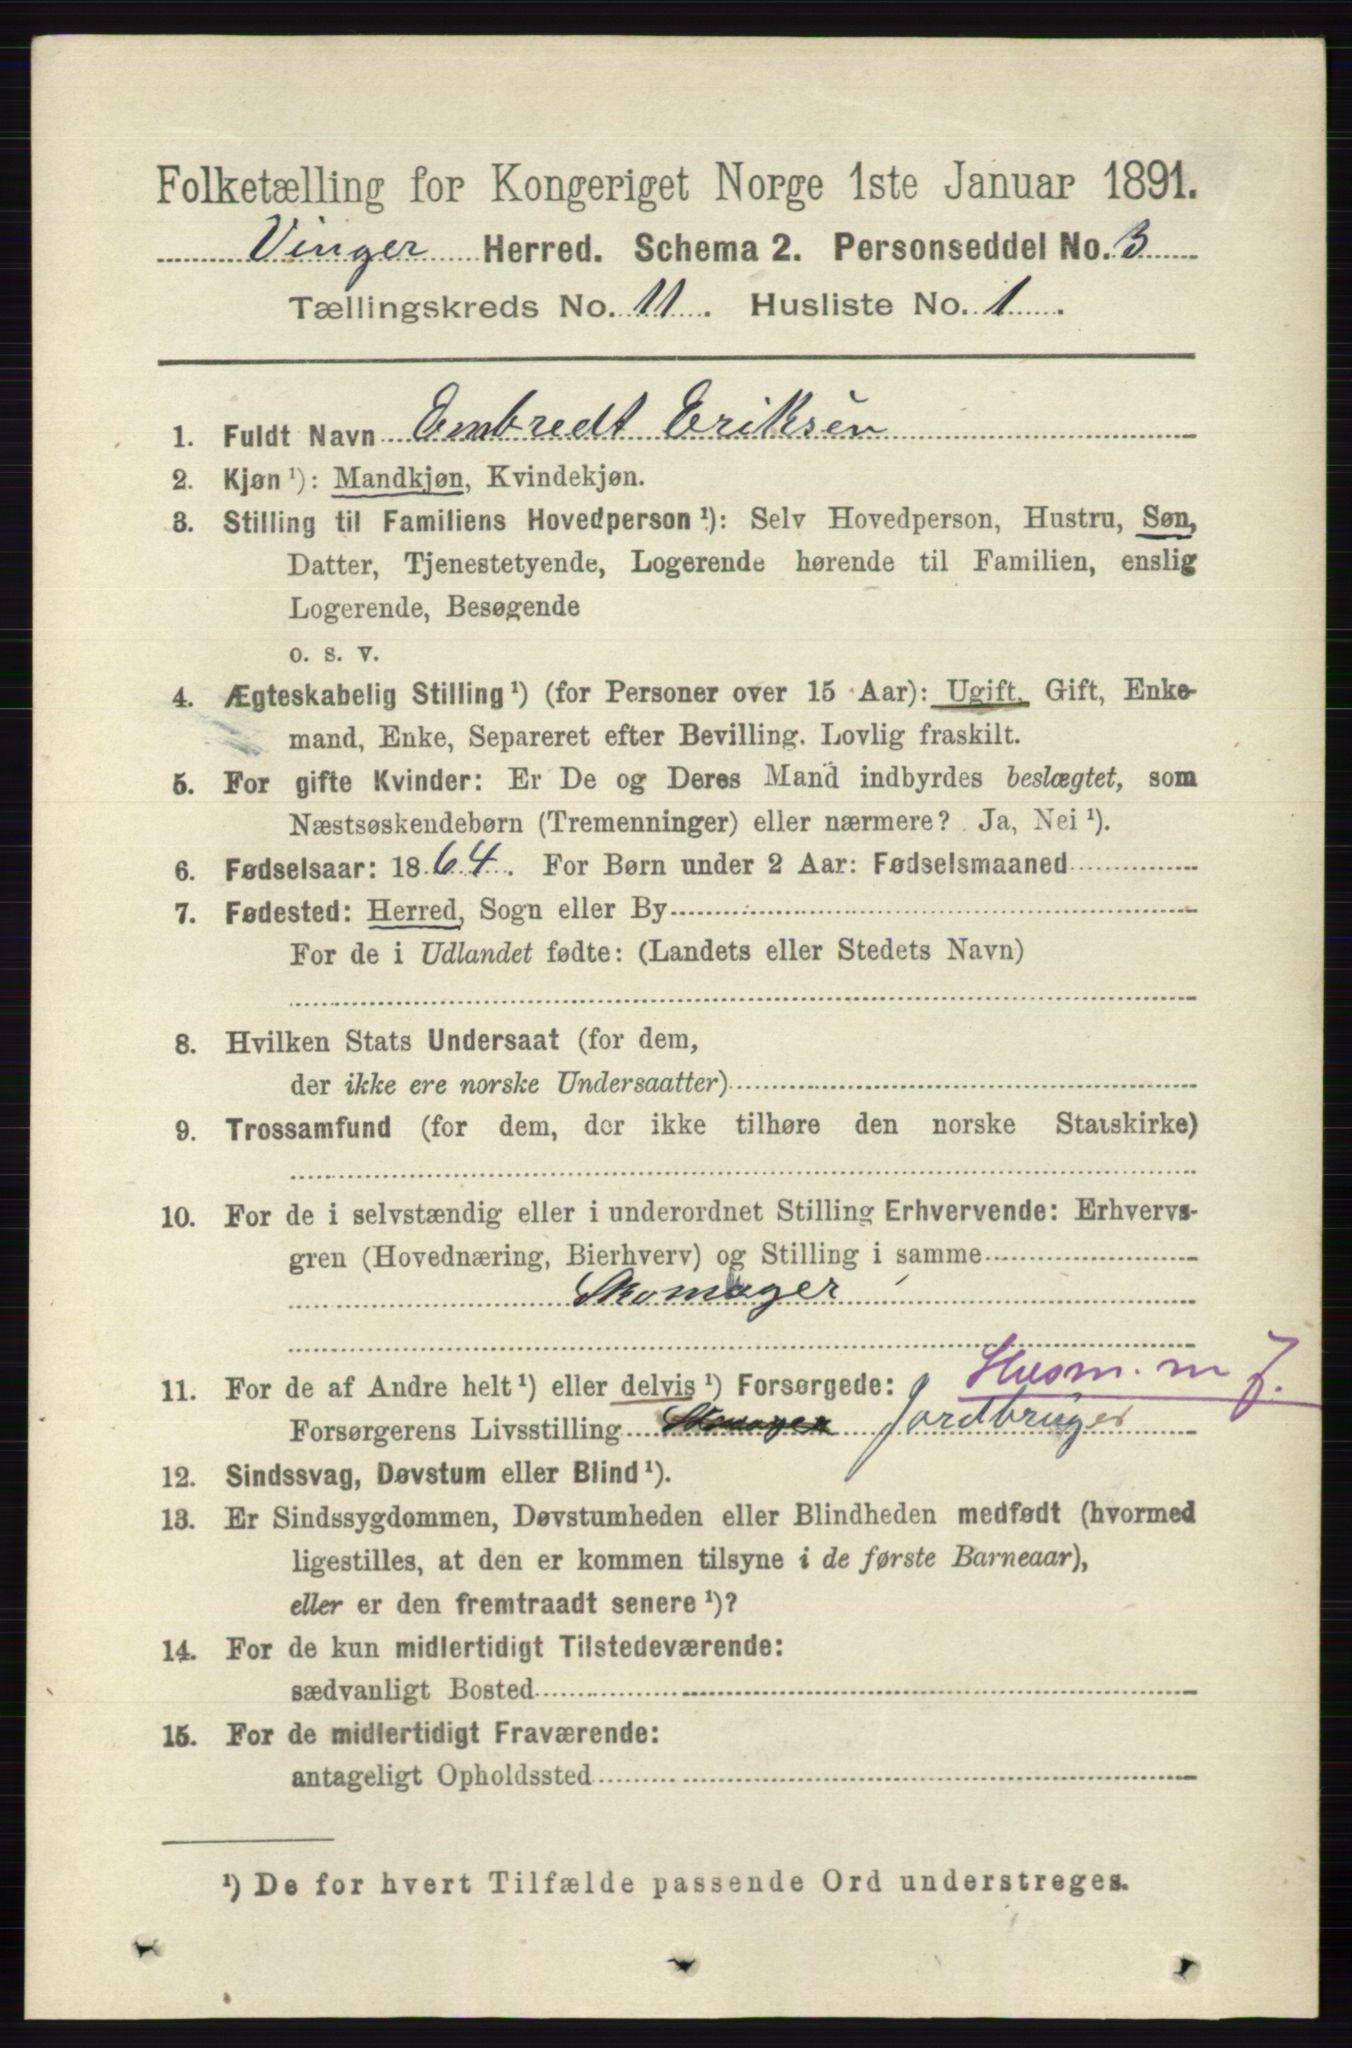 Folketælling for Kongeriget Norge 1ste Januar 1891.
Vinger Herred. Schema 2. Personseddel No. 3
Tællingskreds No. 11. Husliste No. 1.
1. Fuldt Navn Embredt Eriksen
2. Kjøn ¹): Mandkjøn, Kvindekjøn.
3. Stilling til Familiens Hovedperson ¹): Selv Hovedperson, Hustru, Søn,
Datter, Tjenestetyende, Logerende hørende til Familien, enslig
Logerende, Besøgende
o. s. v.
4. Ægteskabelig Stilling ¹) (for Personer over 15 Aar): Ugift, Gift, Enke-
mand, Enke, Separeret efter Bevilling. Lovlig fraskilt.
5. For gifte Kvinder: Er De og Deres Mand indbyrdes beslægtet, som
Næstsøskendebørn (Tremenninger) eller nærmere? Ja, Nei ¹).
6. Fødselsaar: 1864. For Børn under 2 Aar: Fødselsmaaned
7. Fødested: Herred, Sogn eller By
For de i Udlandet fødte: (Landets eller Stedets Navn)
8. Hvilken Stats Undersaat (for dem,
der ikke ere norske Undersaatter)
9. Trossamfund (for dem, der ikke tilhøre den norske Statskirke)
10. For de i selvstændig eller i underordnet Stilling Erhvervende: Erhvervs-
gren (Hovednæring, Bierhverv) og Stilling i samme
Skomager
Husm. m J.
11. For de af Andre helt ¹) eller delvis ¹) Forsørgede:
Forsørgerens Livsstilling Skomager Jordbruger
12. Sindssvag, Døvstum eller Blind ¹).
13. Er Sindssygdommen, Døvstumheden eller Blindheden medfødt (hvormed
ligestilles, at den er kommen tilsyne i de første Barneaar),
eller er den fremtraadt senere ¹)?
14. For de kun midlertidigt Tilstedeværende:
sædvanligt Bosted
15. For de midlertidigt Fraværende:
antageligt Opholdssted
¹) De for hvert Tilfælde passende Ord understreges.